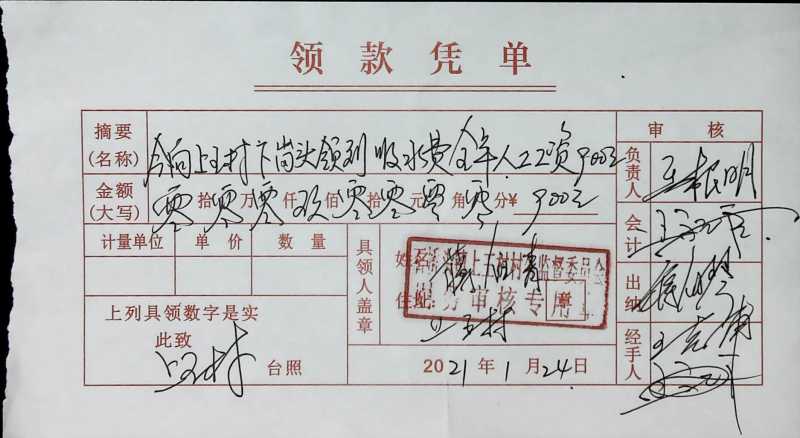 领款凭单
摘要(名称) 今向上王村下岗头领到 收水费全年人工工资900元 审核
金额(大写) 零拾零万零仟玖佰零拾零元零角零分¥900元
负责人 王根明
计量单位 单价 数量 具领人盖章 姓名 会计
上王村村 监督委员会
财务审核专用章
住址 上王村 出纳
上列具领数字是实
此致
上王村 台照 2021年1月24日 经手人